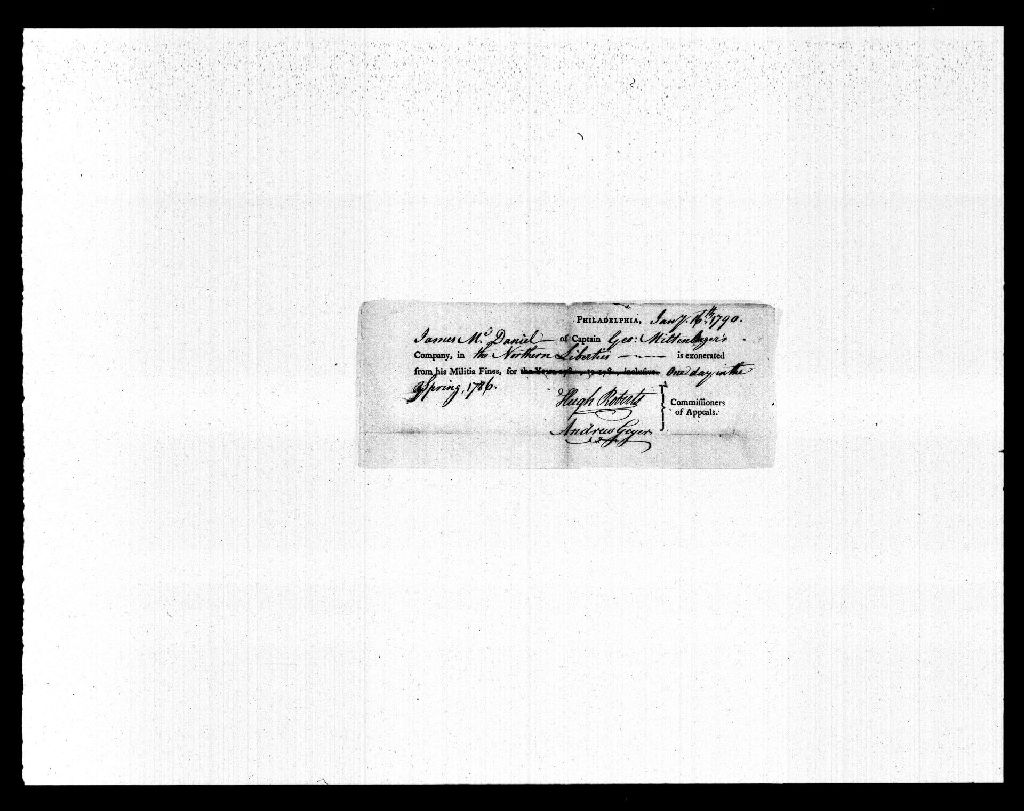 PHILADELPHIA, Jan'y. 16th. 1790.
James Mc. Daniel of Captain Geo: Mittenberger's
Company, in the Northern Liberties is exonerated
from his Militia Fines, for One day, in the
Spring, 1786.
Hugh Roberts
Andrew Geyer
Commissioners
of Appeals.